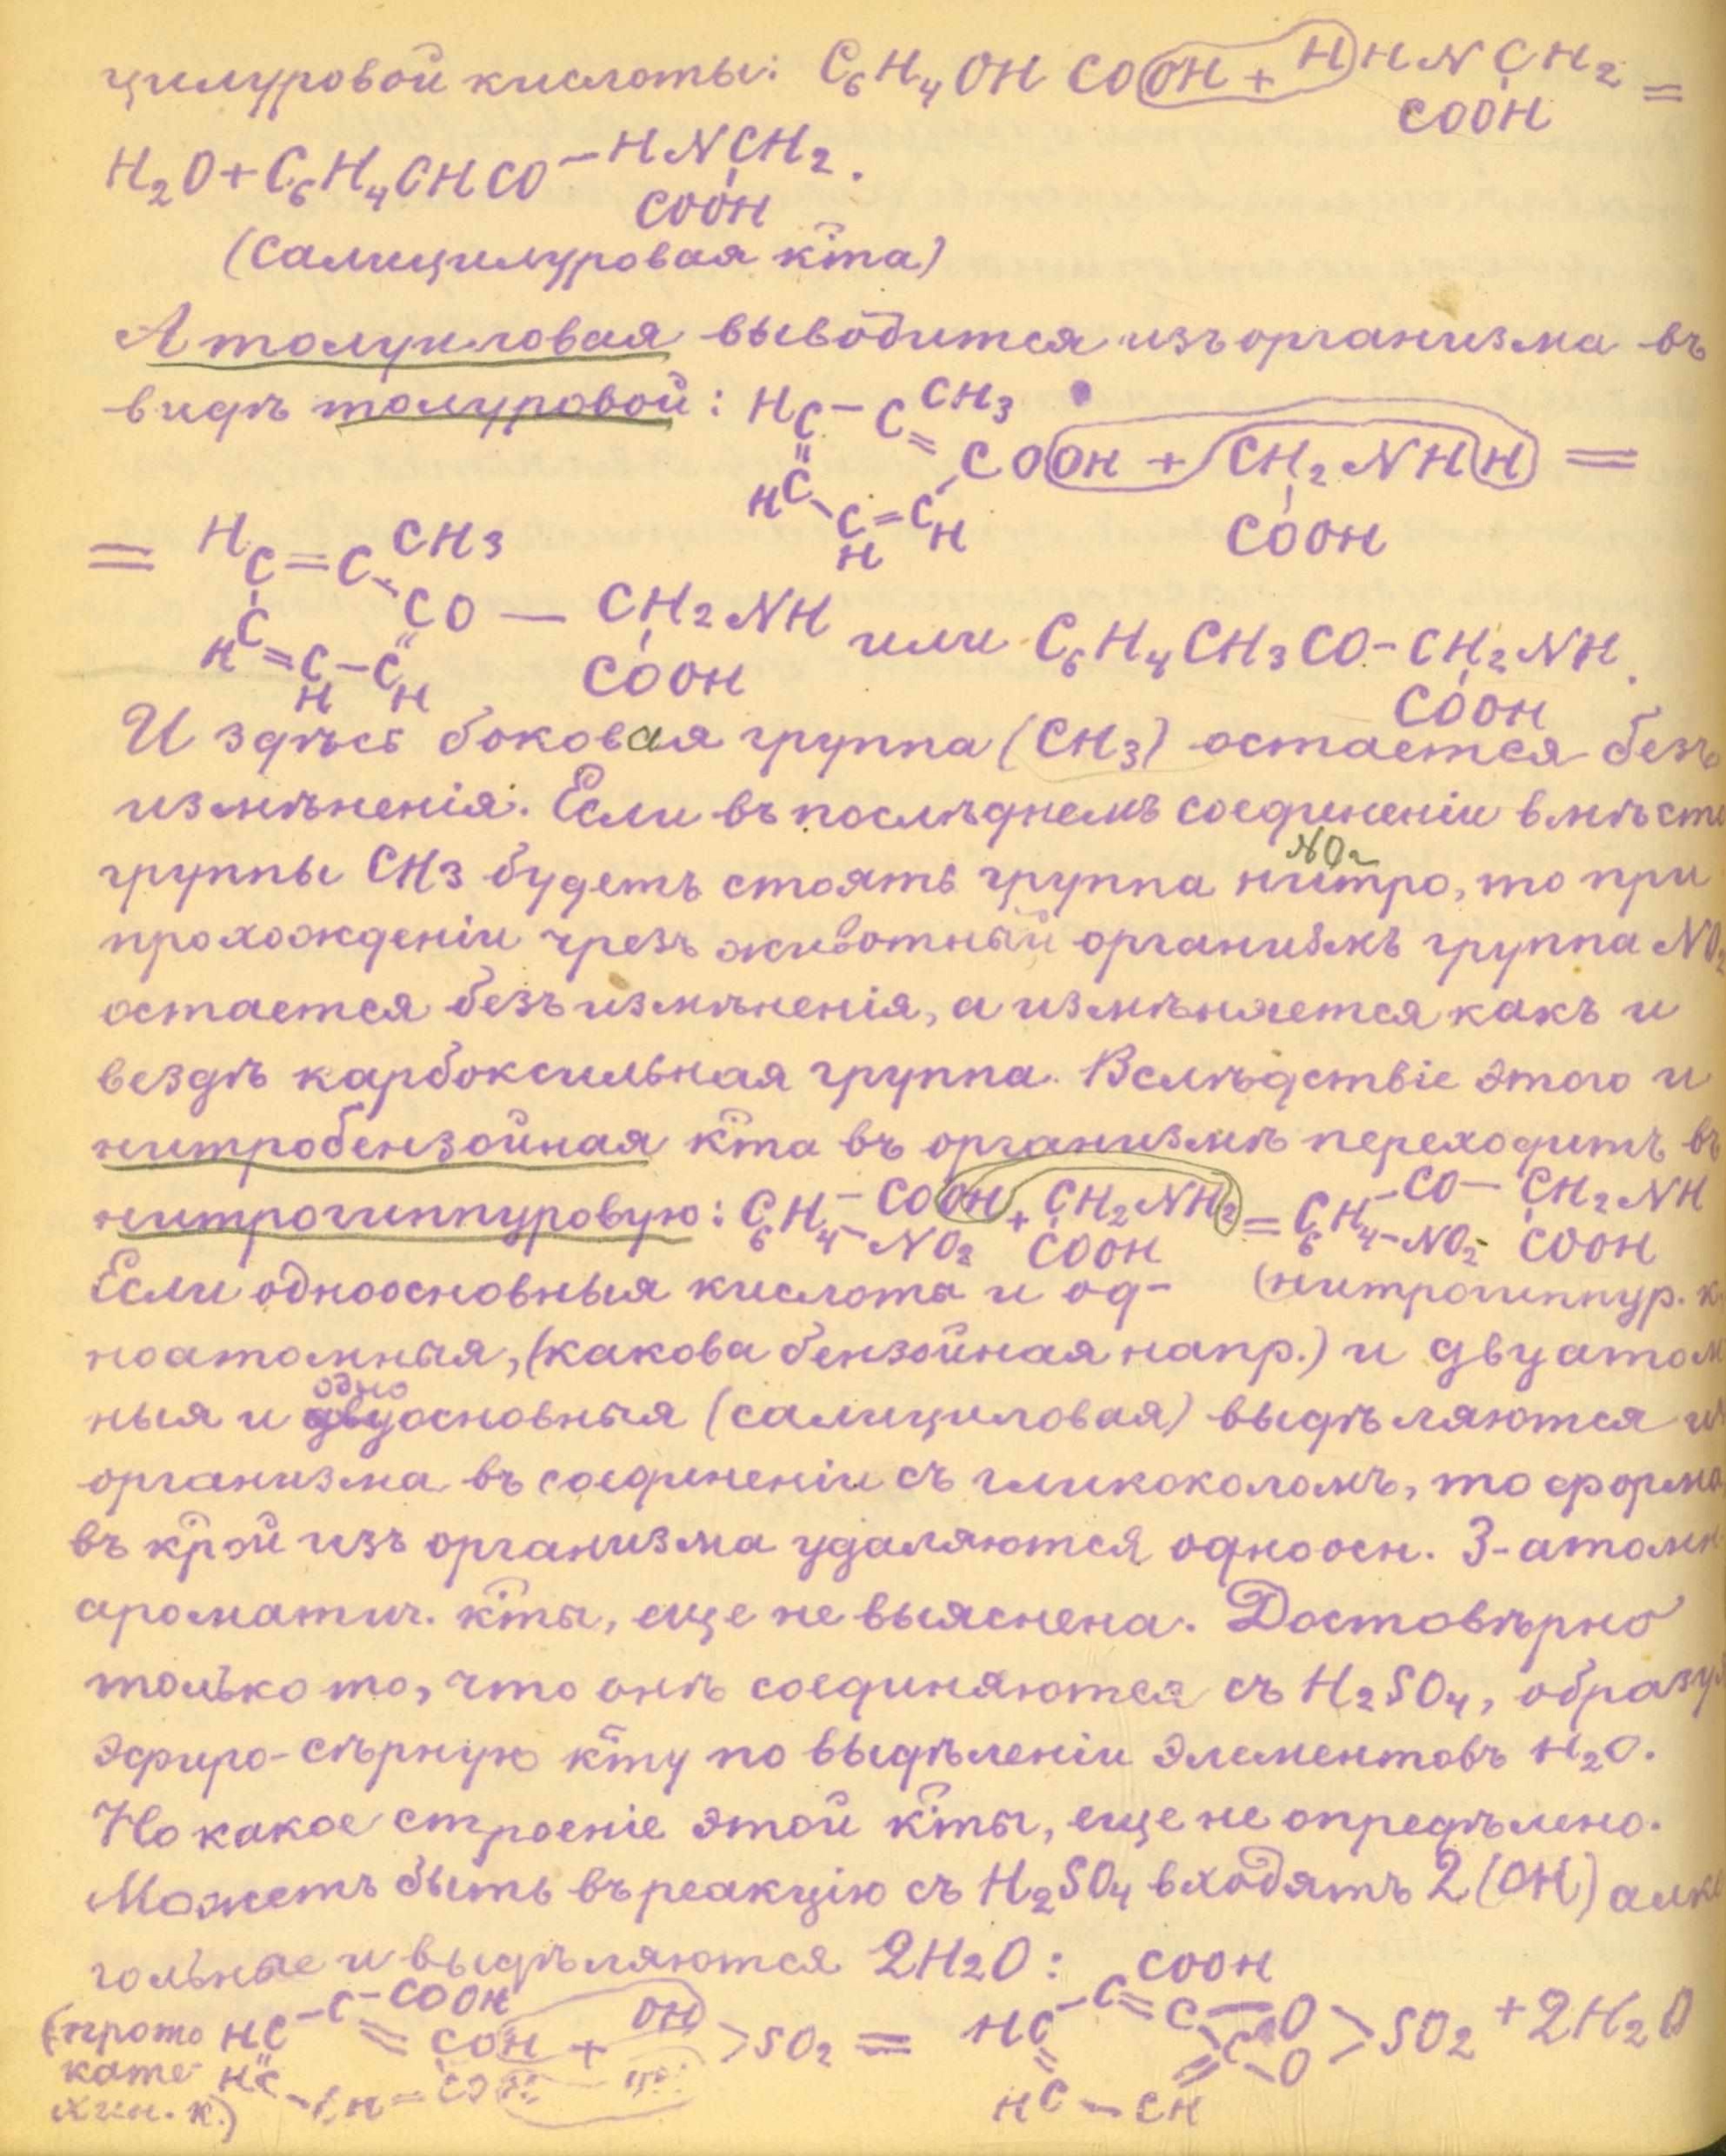 цилуровой кислоты: C6H4OH COOH + HHNCH2 =
COOH
H2O + C6H4OHCO – HNCH2.
COOH
(Салицилуровая к̈та)
А толуиловая выводится изъ организма въ
видѣ толуровой: HC – C CH3
COOH + CH2NHH =
HC – C = CH
H
COOH
= HC = C CH3
CO — CH2NH или C6H4CH3CO – CH2NH.
HC = C – CH
H
COOH
COOH
И здѣсь боковая группа (CH3) остается безъ
измѣненія. Если въ послѣднемъ соединеніи вмѣсто
NO2
группы CH3 будетъ стоять группа нитро, то при
прохожденіи чрезъ животный организмъ группа NO2
остается безъ измѣненія, а измѣняется какъ и
вездѣ карбоксильная группа. Вслѣдствіе этого и
нитробензойная к̈та въ организмѣ переходитъ въ
нитрогиппуровую: C6H4 – COOH + CH2NH2 = C6H4 – CO – CH2NH
– NO2 COOH – NO2 COOH
Если одноосновныя кислота и од- (нитрогиппур. к
ноатомныя, (какова бензойная напр.) и двуатом
одно
ныя и двуосновныя (салициловая) выдѣляются из
организма въ соединеніи съ гликоколомъ, то форма
въ к̈рой изъ организма удаляются одноосн. 3-атомн
ароматич. к̈ты, еще не выяснена. Достовѣрно
только то, что онѣ соединяются съ H2SO4, образуя
эфиро-сѣрную к̈ту по выдѣленіи элементовъ H2O.
Но какое строеніе этой к̈ты, еще не опредѣлено.
Можетъ быть въ реакцію съ H2SO4 входятъ 2 (OH) алко
гольные и выдѣляются 2H2O:
(прото HC – C – COOH
= COH + OH > SO2 = HC – C COOH = C – O > SO2 + 2H2O
кате HC – CH = C
C – O
хин. к.)
HC – CH